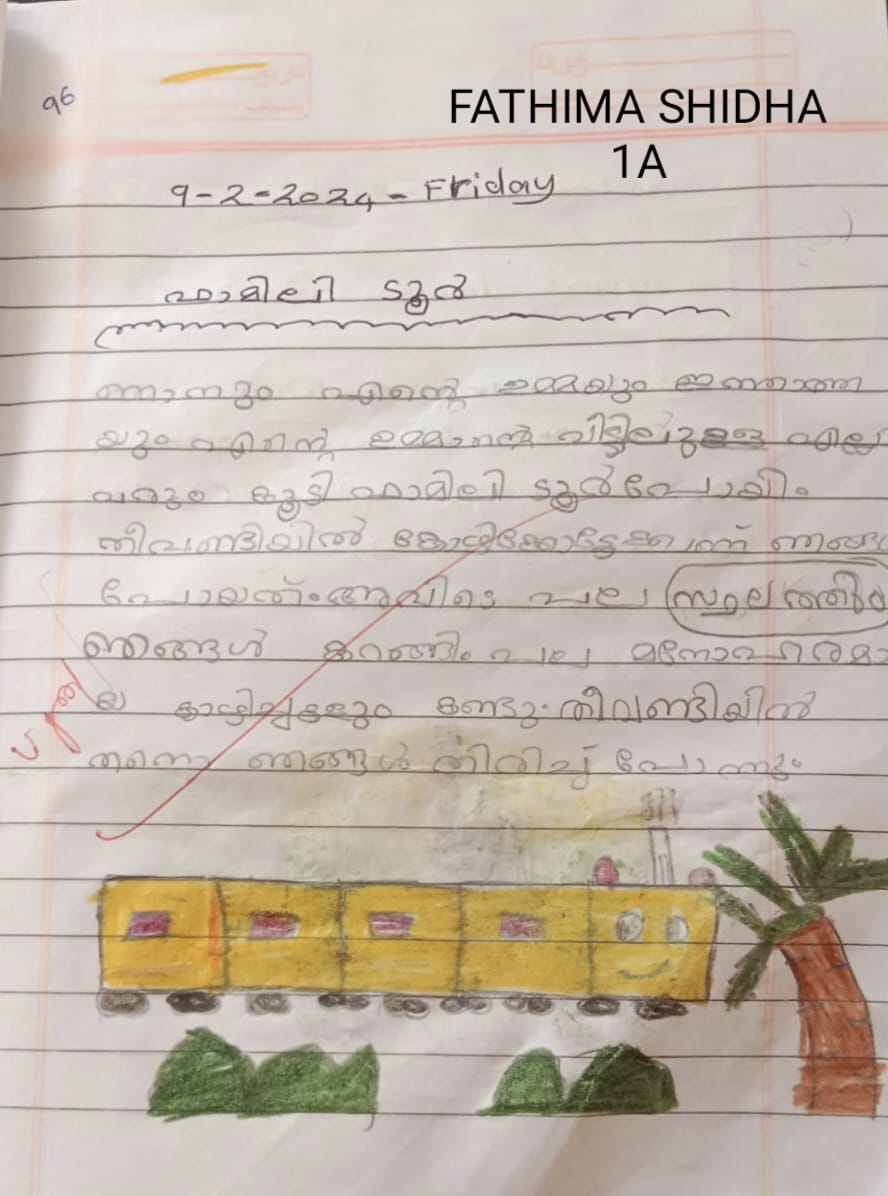 96
FATHIMA SHIDHA
1A
9-2-2024 - Friday
ഫാമിലി ടൂർ
ഞാനും എന്റെ ഉമ്മയും ഇത്താത്ത
യും എന്റെ ഉമ്മാന്റെ വീട്ടിലുള്ള എല്ലാ
വരും കൂടി ഫാമിലി ടൂർ പോയി.
തീവണ്ടിയിൽ കോഴിക്കോട്ടേക്കാണ് ഞങ്ങൾ
പോയത്. അവിടെ പല സ്ഥലത്തും
ഞങ്ങൾ കറങ്ങി. പല മനോഹരമാ
യ കാഴ്ച്ചകളും കണ്ടു. തീവണ്ടിയിൽ
തന്നെ ഞങ്ങൾ തിരിച്ച് പോന്നു.